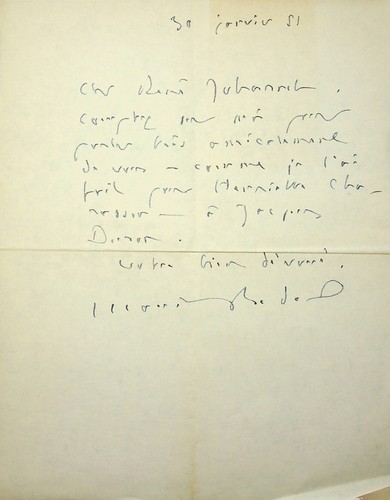 30 janvier 51
Cher René Johannet.
Comptez sur moi pour
parler très amicalement
de vous — comme je l'ai
fait pour Henriette Cha-
rasson — à Jacques
Duron.
Votre bien dévoué.
Maurice Bedel